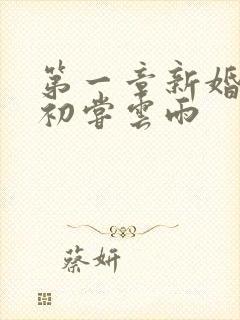 第一章新婚
初嘗雲雨
蔡妍